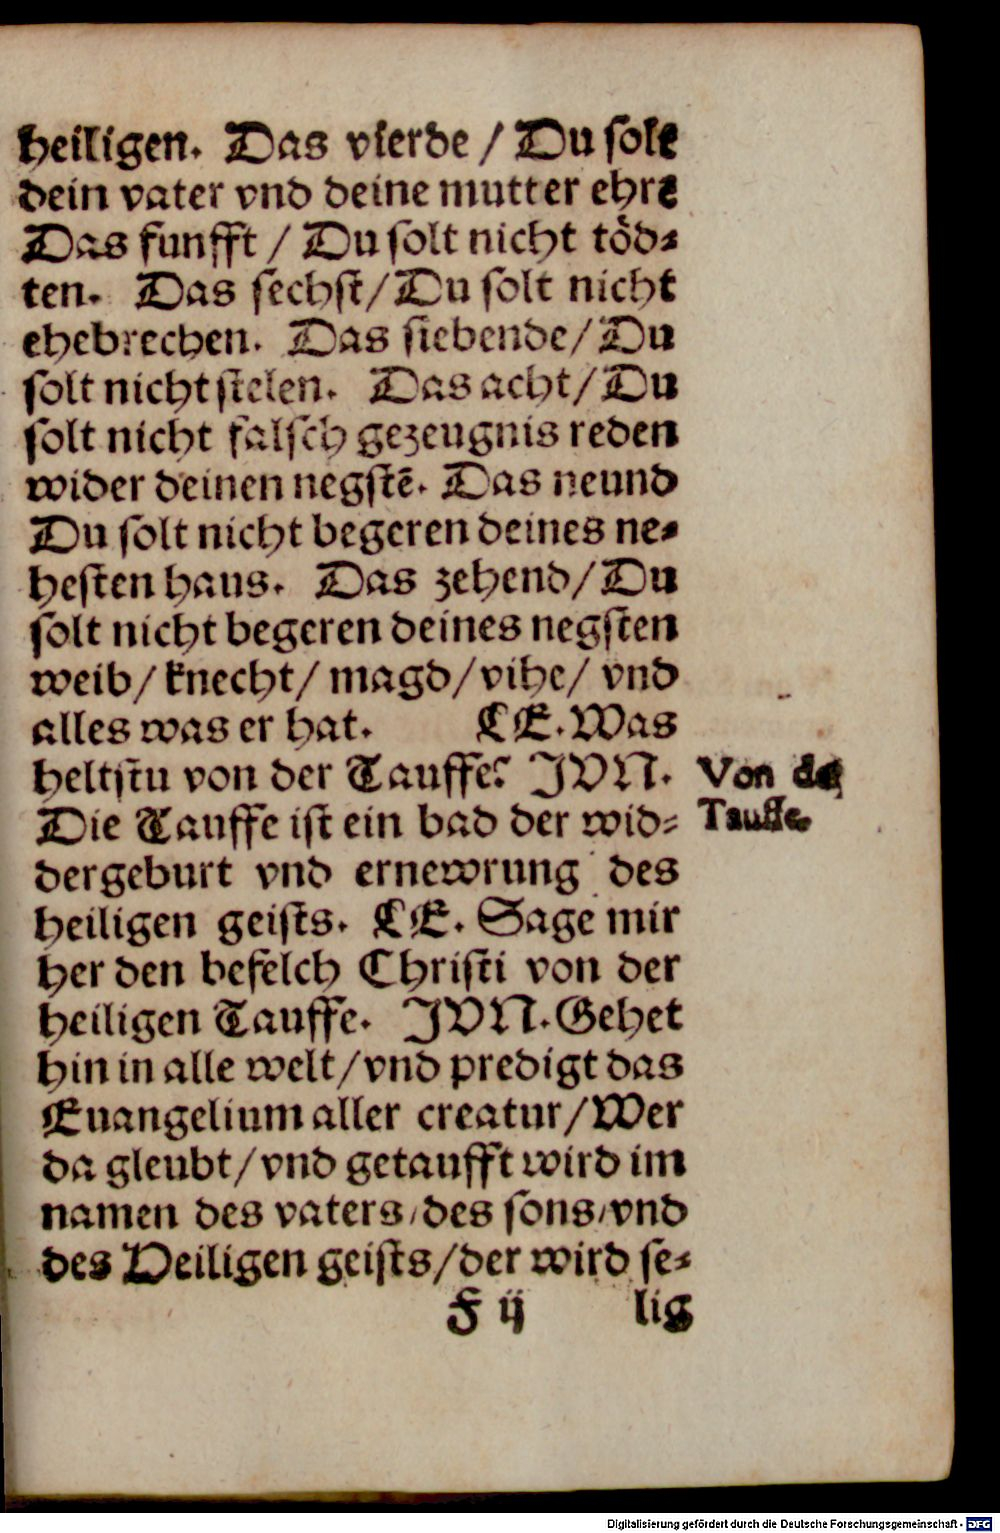 heiligen. Das vierde / Du solt
dein vater vnd deine mutter ehre
Das funfft / Du solt nicht töd⸗
ten. Das sechst / Du solt nicht
ehebrechen. Das siebende / Du
solt nicht stelen. Das acht / Du
solt nicht falsch gezeugnis reden
wider deinen negstē. Das neund
Du solt nicht begeren deines ne⸗
hesten haus. Das zehend / Du
solt nicht begeren deines negsten
weib / knecht / magd / vihe / vnd
alles was er hat. LE. Was
heltstu von der Tauffe? JVN.
Von der
Die Tauffe ist ein bad der wid⸗
Tauffe.
dergeburt vnd ernewrung des
heiligen geists. LE. Sage mir
her den befelch Christi von der
heiligen Tauffe. JVN. Gehet
hin in alle welt / vnd predigt das
Euangelium aller creatur / Wer
da gleubt / vnd getaufft wird im
namen des vaters / des sons / vnd
des Heiligen geists / der wird se⸗
F ij lig
Digitalisierung gefördert durch die Deutsche Forschungsgemeinschaft - DFG